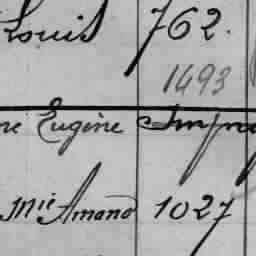 Louis 762.
1493
Eugène
Mie Amand 1027